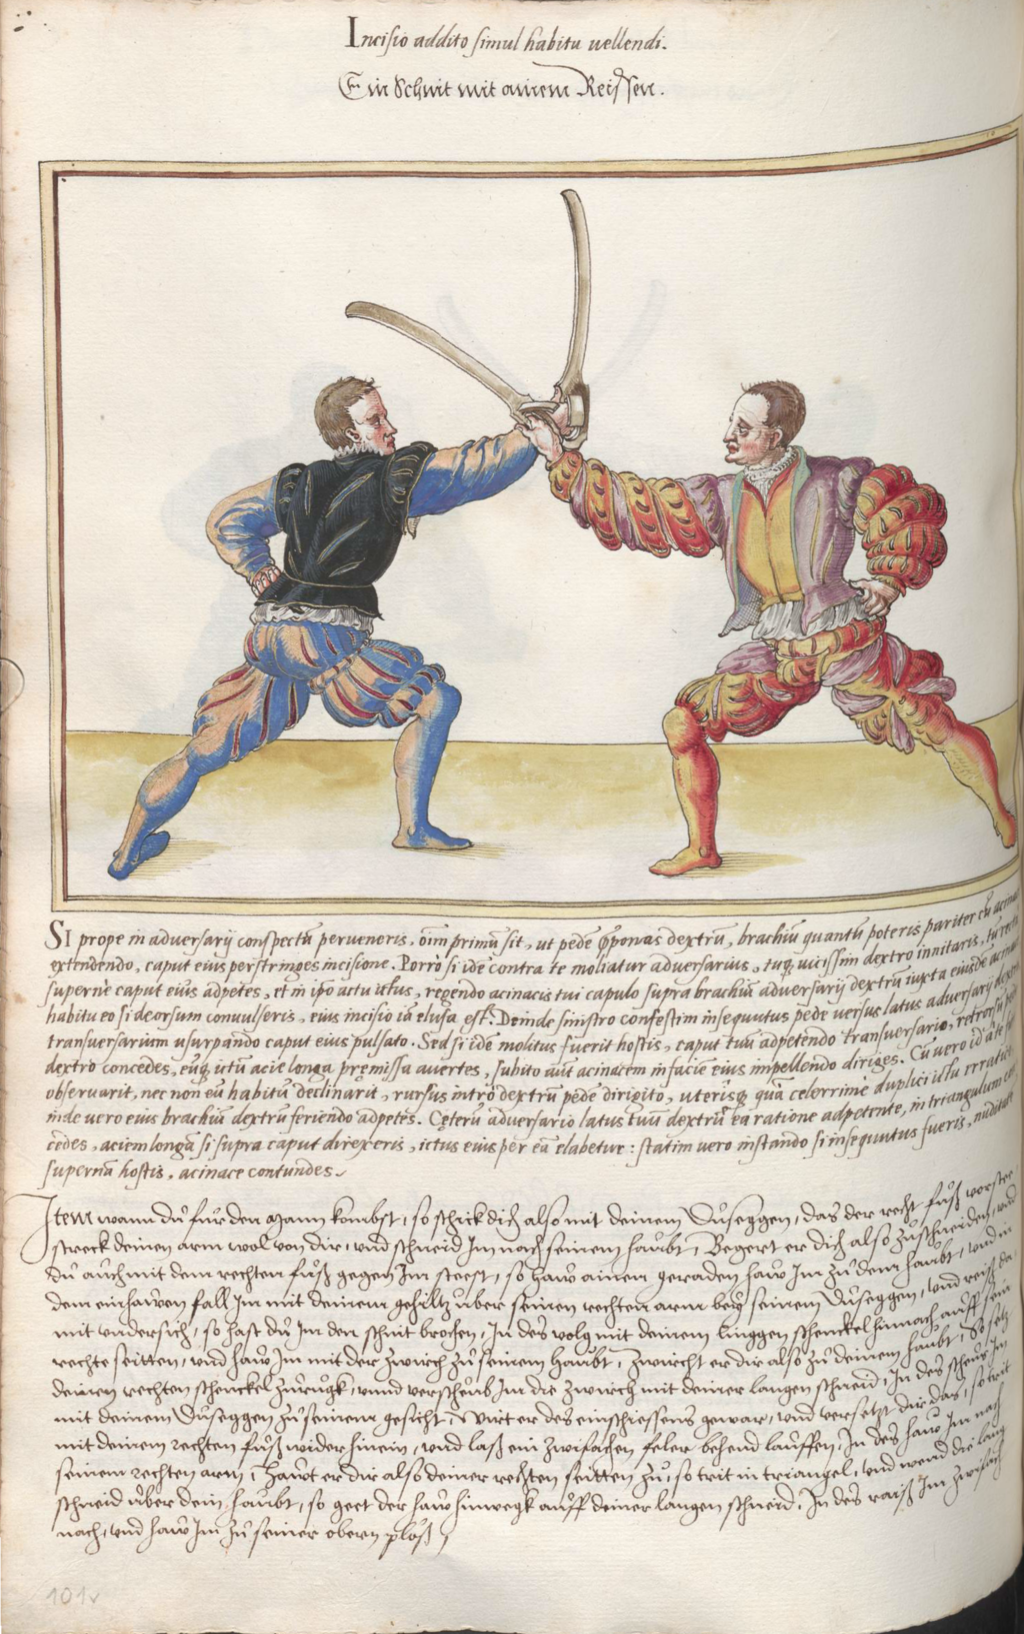 Incisio addito simul habitu uellendi.
Ein Schnit mit ainem Reissen.
SI prope in adversarij conspectũ perueneris, oĩm primũ sit, ut pedẽ p̱ponas dextrũ, brachiũ quantũ poteris pariter cũ
extendendo, caput eius perstringes incisione. Porrò si idẽ contra te moliatur adversarius, tuq̃ uicissim dextro innitaris,
supernè caput eius adpetes, et in ip̃o actu istius, regendo acinacis tui capulo supra brachiũ adversarij dextrũ iuxta eiusdẽ
habitu eo si deorsum conuulseris, eius incisio iã elusa est. Deinde sinistro confestim insequutus pede uersus latus adversarij
transuersarium usurpando caput eius pulsato. Sed si idẽ molitus fuerit hostis, caput tuũ adpetendo transuersario,
dextro concedes, eũq̃ ictũ acie longa præmissa auertes, subito aũt acinacem in faciẽ eius impellendo diriges. Cũ uero id
observarit, nec non eũ habitũ declinarit, rursus intrò dextrũ pedẽ dirigito, uterisq̃ quã celerrimè duplici ictu
inde uero eius brachiũ dextrũ feriendo adpetes. Cęterũ adversario latus tuũ dextrũ ea ratione adpetente, in triangulum
cędes, aciem longã si supra caput direxeris, ictus eius per eã elabetur: statim uero instando si insequutus fueris,
supernã hostis, acinace contundes.
Item wann du für den Mann kombst, so schick dich also mit deinem Duseggen, das der recht fuß vorstee
streck deinen arm wol von dir, und schneid Im nach seinem haubt, Begert er dich also zuschneiden, und
du auch mit dem rechten fuß gegen Im steest, so haw ainen geraden haw Im zu dem haubt, und in
dem einhawen fall Im mit deinem gehiltz uber seinen rechten arm bey seinem Duseggen, und reiß
mit undersich, so hast du Im den schnit brochen, In des volg mit deinem linggen schenckel hinnach auff sein
rechte seitten, und haw Im mit der zwürch zu seinem haubt, zwürcht er dir also zu deinem haubt, So setz
deinen rechten schenckel zurugk, unnd verscheub Im die zwürch mit deiner langen schneid, In des scheus Im
mit deinem Duseggen zu seinem gesicht, Wurt er des einschiessens gewar, und versetzt dir das, so trit
mit deinem rechten fuß wider hinein, und laß ein zwifachen feler behend lauffen, In des haw Im nach
seinem rechten arm, Hawt er dir also deiner rechten seitten zu, so trit in triangel, und wend die lang
schneid uber dein haubt, so geet der haw hinwegk auff deiner langen schneid, In des raiß Im zwifach
nach, und haw Im zu seiner obern plöß,
101v